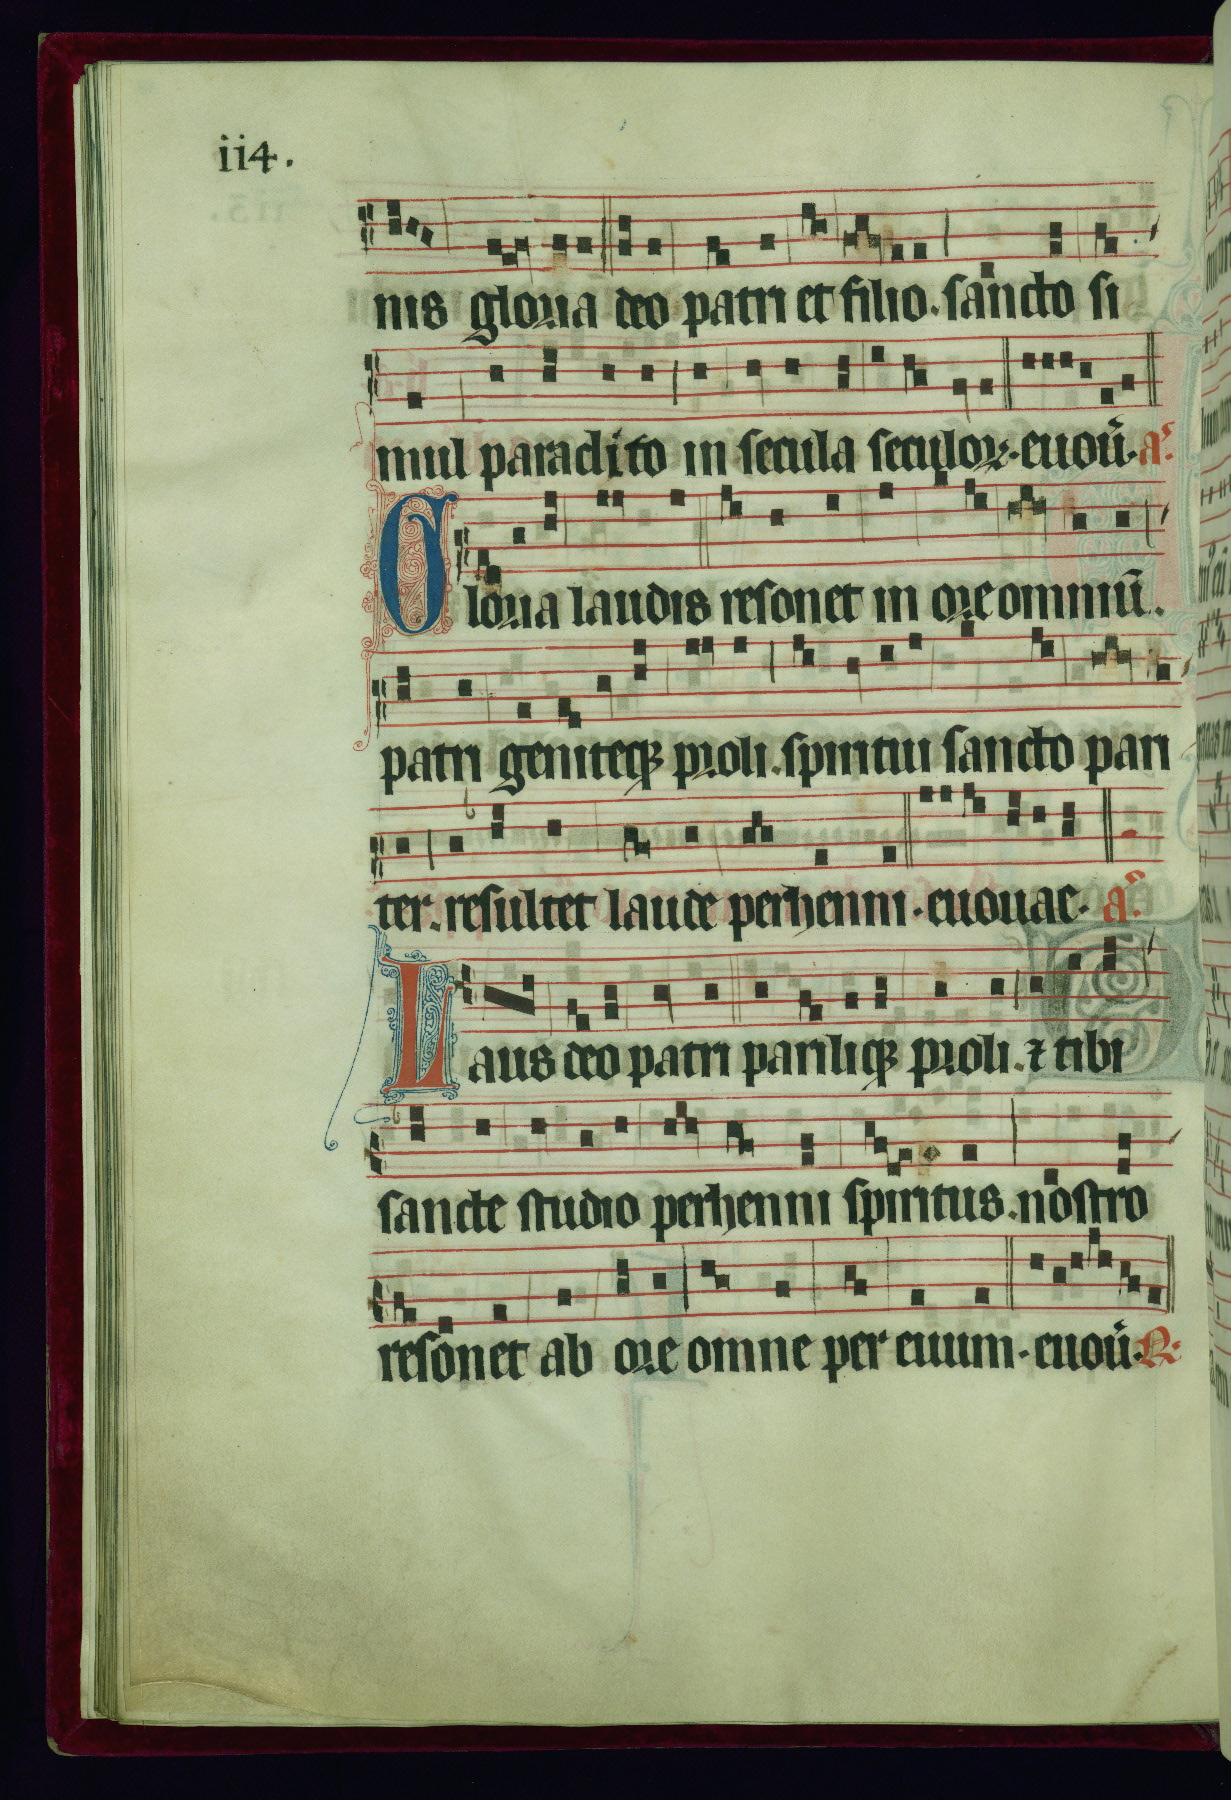 ii4.
nis gloria deo patri et filio. sancto si
mul paraclito in secula seculoꝝ. euoū. aͬ.
Gloria laudis resonet in ore omniū.
patri geniteqꝫ proli. spiritui sancto pari
ter. resultet laude perhenni. euouae. aͬ.
Laus deo patri pariliqꝫ proli. ⁊ tibi
sancte studio perhenni spiritus. nostro
resonet ab ore omne per euum. euoū. R.